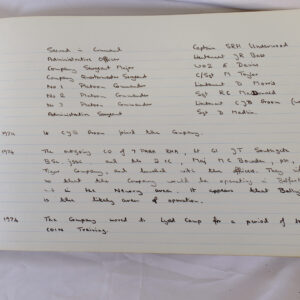 Second in Command Captain SRH Underwood
Administrative Officer Lieutenant JR
Company Sergeant Major WO2 E Davies
Company Quartermaster Sergeant C/Sgt M Taylor
No 1 Platoon Commander Lieutenant D Morris
No 2 Platoon Commander Sgt RC
No 3 Platoon Commander Lieutenant CJB Green
Administration Sergeant Sgt D
1974 Lt CJB Green joined the Company.
1974 The outgoing CO of 7 RHA, Lt Col JT
BSc and his 2IC, Maj MC
Tiger Company, and with the officers. They
that the Company would be operating in
in the Newry area. It appears that
is the likely area of operation.
1974 The Company moved to Lydd Camp for a period of
COIN Training.